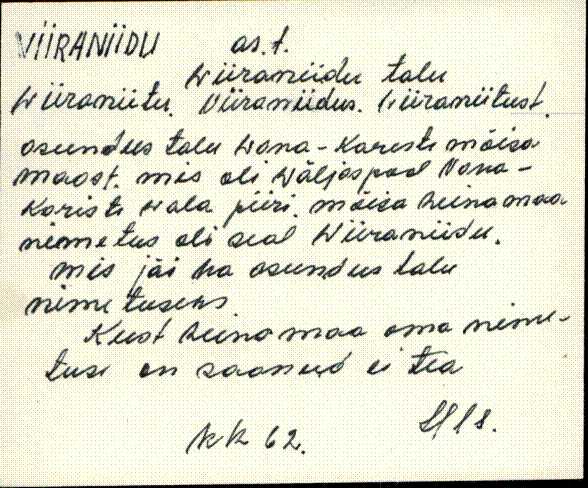 VIIRANIIDU as. t.
Wiiraniidu talu
Wiiraniitu. Viiraniidus. Wiiraniitust.
asundus talu Wana-Karisti mõisa
maast. mis oli wäljaspool Vana-
Karisti wala piiri. mõisa heinamaa
nimetus oli seal Wiiraniidu.
mis jäi ka asundus talu
nimetuseks.
Kust heinamaa oma nime-
tuse on saanud ei tea
KK 62.